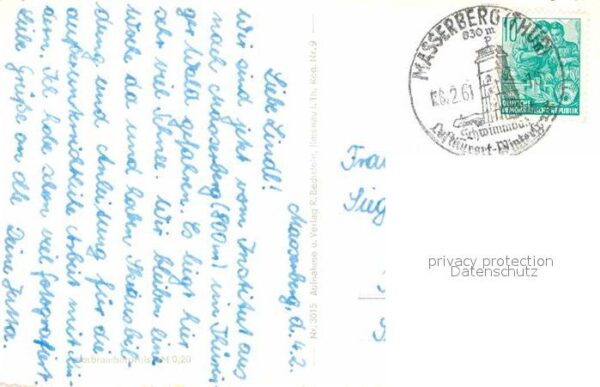 Masserberg, d. 4.2.
Liebe Lindl!
Wir sind jetzt vom Institut aus
nach Masserberg (800m) im Thürin-
ger Wald gefahren. Es liegt hier
sehr viel Schnee. Wir bleiben eine
Woche da und haben Skiausbil-
dung und Anleitung für die
außerunterrichtliche Arbeit mit Kin-
dern. Ich habe schon viel fotografiert.
Liebe Grüße an alle Deine Jutta.
Nr. 3015 Aufnahme u. Verlag R. Bechstein, i. Th. Nr. 9
M 0,20
MASSERBERG (THÜR)
830 m
6.2.61
Schwimmbad
Luftkurort-Winter
10
DEUTSCHE
DEMOKRATISCHE REPUBLIK
Frau
Sieg
privacy protection
Datenschutz